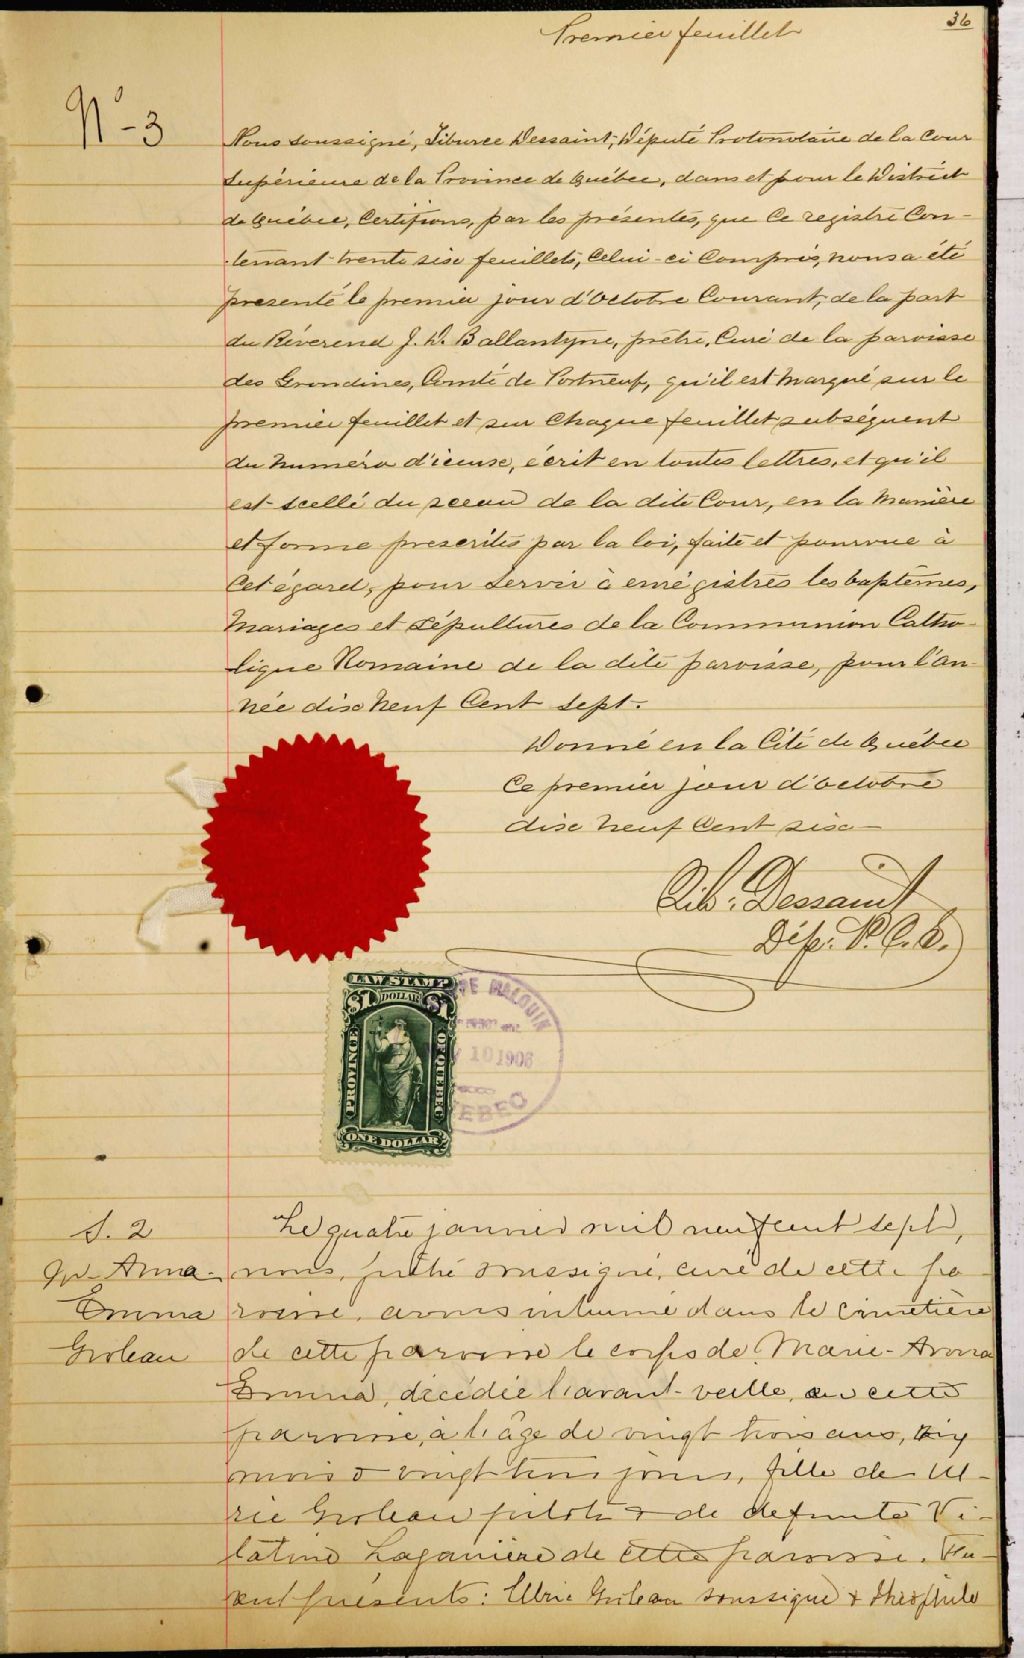 36
Premier feuillet
No-3
Nous soussigné, Tiburce Dessaint, Député Protonotaire de la Cour
Supérieure de la Province de Québec, dans et pour le District
de Québec, Certifions, par les présentes, que ce registre con-
-tenant trente six feuillets, celui-ci compris, nous a été
presenté le premier jour d'Octobre Courant, de la part
du Révérend J. D. Ballantyne, prêtre, Curé de la paroisse
des Grondines, Comté de Portneuf, qu'il est marqué sur le
premier feuillet et sur chaque feuillet subséquent
du numéro d'iceux, écrit en toutes lettres, et qu'il
est scellé du sceau de la dite Cour, en la manière
et forme prescrites par la loi, faite et pourvue à
Cet égard, pour servir à enrégistrer les baptêmes,
Mariages et Sépultures de la Communion Catho-
-lique Romaine de la dite paroisse, pour l'an-
née dix neuf Cent Sept.
Donné en la Cité de Québec
Ce premier jour d'octobre
dix neuf Cent six—
Tib. Dessaint
Dép. P.C.S.
LAW STAMP
$1 DOLLAR $1
PROVINCE OF QUEBEC
ONE DOLLAR
MALOUIN
10 1906
QUEBEC
S. 2
M- Anna-
Emma
Groleau
Le quatre janvier mil neuf cent sept,
nous, prêtre soussigné, curé de cette pa-
roisse, avons inhumé dans le cimetière
de cette paroisse le corps de Marie-Anna
Emma, décédée l'avant-veille, en cette
paroisse, à l'âge de vingt trois ans,
mois & vingt trois jours, fille de Ul-
ric Groleau pilote & de defunte Vi-
taline Laganière de cette paroisse. Fu-
rent présents: Ulric Groleau soussigné & Théophile